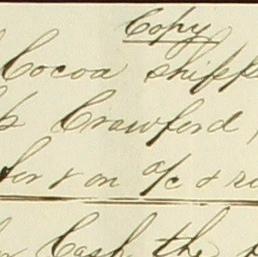 Copy
Cocoa shipp
Crawford
for & on a/c & ri
Cash the